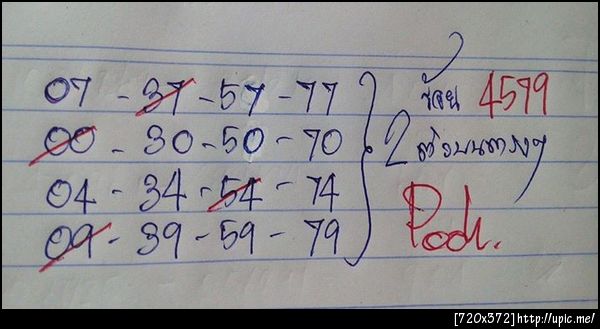 07 - 37 - 57 - 77
00 - 30 - 50 - 70
04 - 34 - 54 - 74
09 - 39 - 59 - 79
ร้อย 4579
2 ตัวบนตรงๆ
[720x572]http://upic.me/